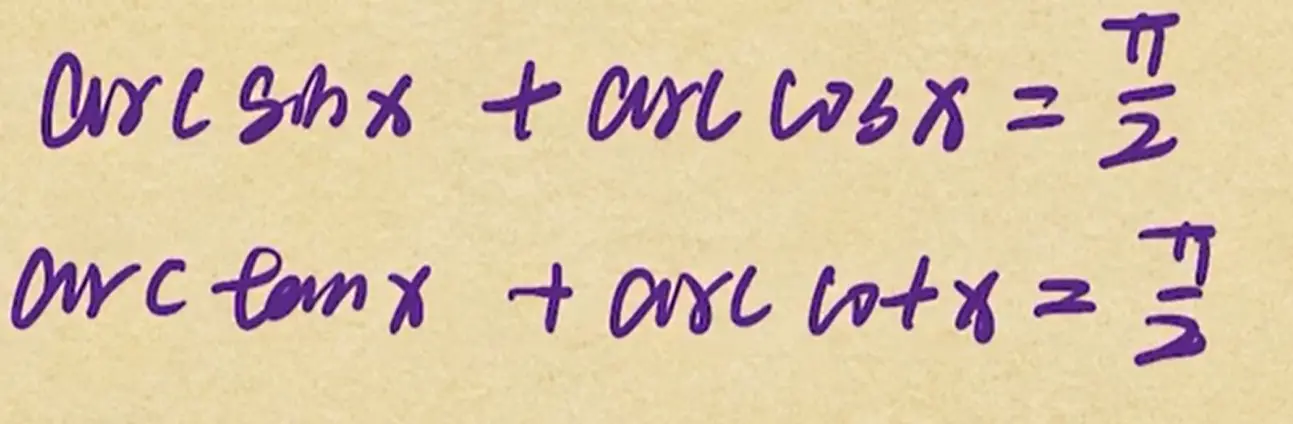 arc sin x + arc cos x = π/2
arc tan x + arc cot x = π/2